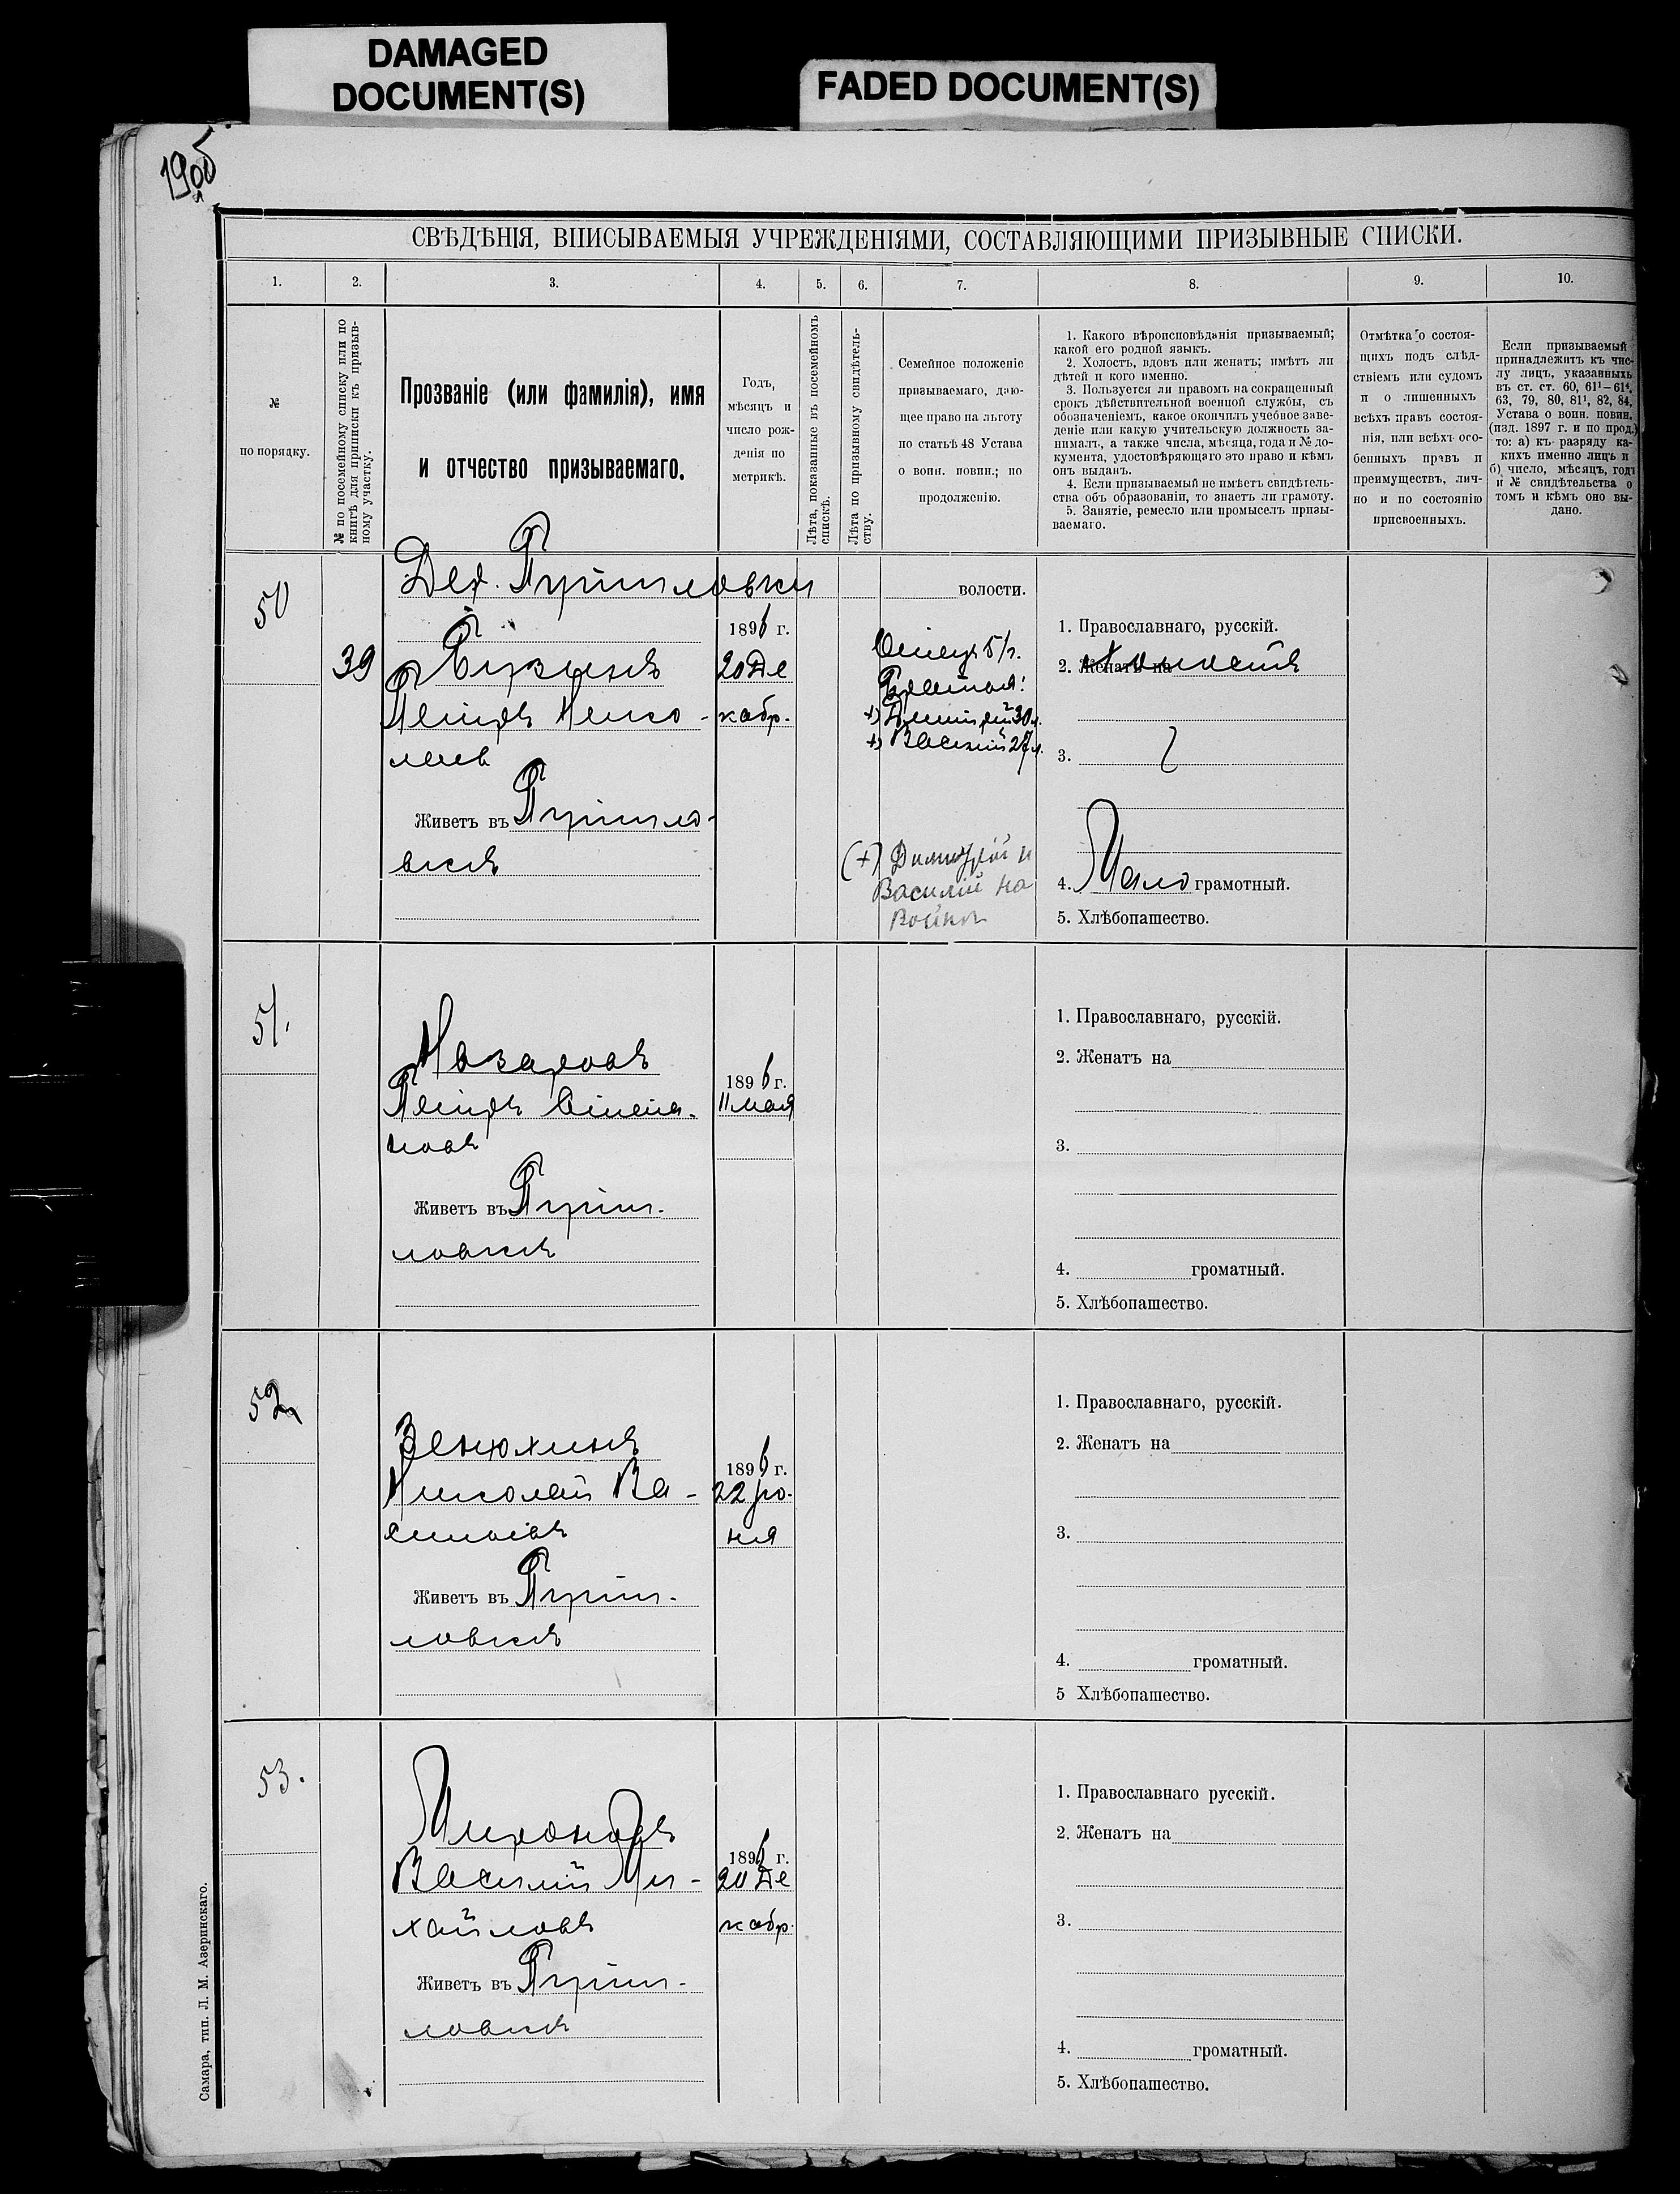 DAMAGED
DOCUMENT(S)
FADED DOCUMENT(S)
1905
СВѢДѢНІЯ, ВПИСЫВАЕМЫЯ УЧРЕЖДЕНІЯМИ, СОСТАВЛЯЮЩИМИ ПРИЗЫВНЫЕ СПИСКИ.
1. 2. 3. 4. 5. 6. 7. 8. 9. 10.
№
по порядку.
№ по посемейному списку или по
книгѣ для приписки къ призыв-
ному участку.
Прозваніе (или фамилія), имя
и отчество призываемаго.
Годъ,
мѣсяцъ и
число рож-
денія по
метрикѣ.
Лѣта, показанные въ посемейномъ
спискѣ.
Лѣта по призывному свидѣтель-
ству.
Семейное положеніе
призываемаго, даю-
щее право на льготу
по статьѣ 48 Устава
о воин. повин.; по
продолженію.
1. Какого вѣроисповѣданія призываемый;
какой его родной языкъ.
2. Холостъ, вдовъ или женатъ; имѣтъ ли
дѣтей и кого именно.
3. Пользуется ли правомъ на сокращенный
срокъ дѣйствительной военной службы, съ
обозначеніемъ, какое окончилъ учебное заве-
деніе или какую учительскую должность за-
нималъ, а также числа, мѣсяца, года и № до-
кумента, удостовѣряющаго это право и кѣмъ
онъ выданъ.
4. Если призываемый не имѣетъ свидѣтель-
ства объ образованіи, то знаетъ ли грамоту.
5. Занятіе, ремесло или промыселъ призы-
ваемаго.
Отмѣтка о состоя-
щихъ подъ слѣд-
ствіемъ или судомъ
и о лишенныхъ
всѣхъ правъ состоя-
нія, или всѣхъ осо-
бенныхъ правъ и
преимуществъ, лич-
но и по состоянію
присвоенныхъ.
Если призываемый
принадлежитъ къ чис-
лу лицъ, указанныхъ
въ ст. ст. 60, 61¹—61⁴,
63, 79, 80, 81¹, 82, 84,
Устава о воин. повин.
(изд. 1897 г. и по прод.)
то: а) къ разряду ка-
кихъ именно лицъ и
б) число, мѣсяцъ, годъ
и № свидѣтельства о
томъ и кѣмъ оно вы-
дано.
50
волости.
39
1896 г.
20 Де
кабр.
Петръ Нико-
лаев
Живетъ въ
Отецъ 51 г.
Братья:
+) Дмитрій 30 л.
+) Василій 27 л.
(+) Димитрій и
Василій на
Войнѣ
1. Православнаго, русскій.
2. Женатъ на Холостъ
3.
4. Мало грамотный.
5. Хлѣбопашество.
51.
Назаровъ
Петръ Степа-
новъ
1896 г.
11 мая
Живетъ въ
1. Православнаго, русскій.
2. Женатъ на
3.
4. громатный.
5. Хлѣбопашество.
52
Зенюхинъ
Николай Ва-
сильевъ
1896 г.
22 Ію-
ня
Живетъ въ
1. Православнаго, русскій.
2. Женатъ на
3.
4. громатный.
5 Хлѣбопашество.
53.
Мироновъ
Василій Ми-
хайловъ
1896 г.
20 Де
кабр.
Живетъ въ
1. Православнаго русскій.
2. Женатъ на
3.
4. громатный.
5. Хлѣбопашество.
Самара, тип. Л. М. Азеринскаго.